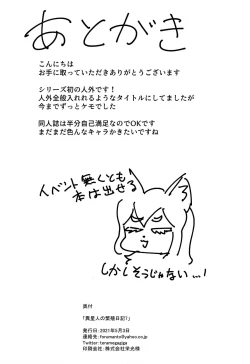 あとがき
こんにちは
お手に取っていただきありがとうございます
シリーズ初の人外です！
人外全般入れれるようなタイトルにしてましたが
今までずっとケモでした
同人誌は半分自己満足なのでOKです
まだまだ色んなキャラかきたいですね
イベント無くとも
本は出せる
しかしそうじゃない…！
奥付
「異星人の繁殖日記7」
発行日: 2021年5月3日
連絡先:
Twitter:
印刷会社: 株式会社栄光様